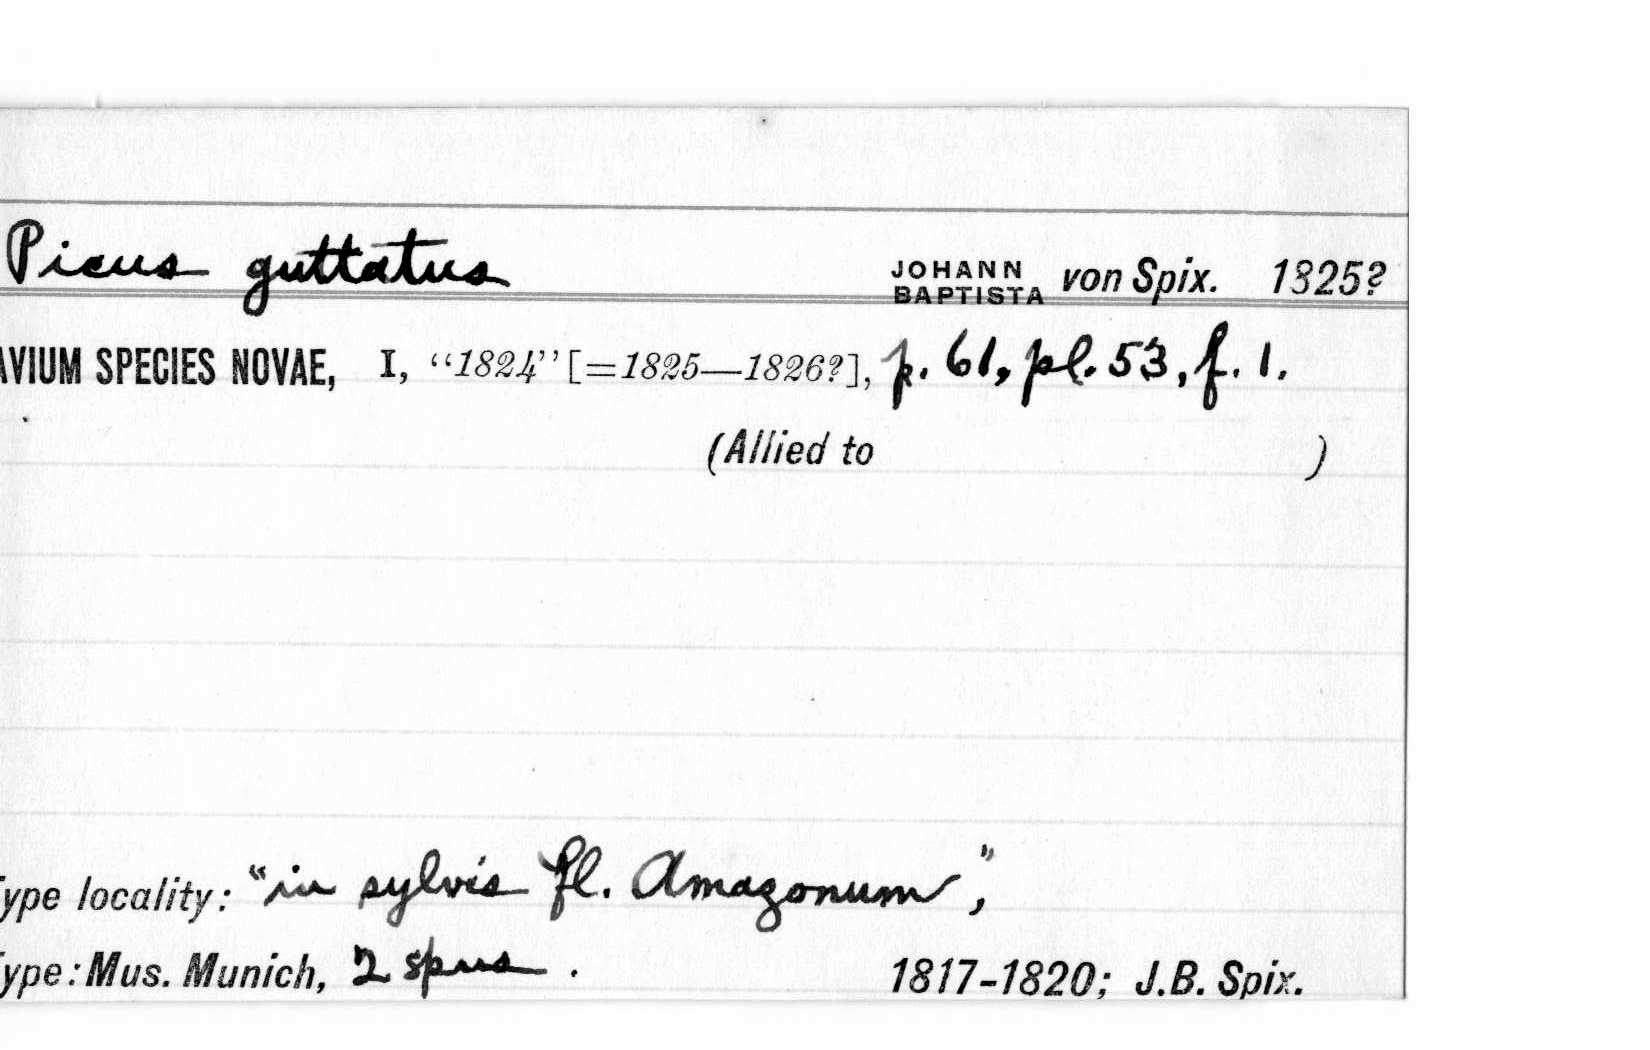 Picus guttatus JOHANN BAPTISTA von Spix. 1825?
AVIUM SPECIES NOVAE, I, “1824” [=1825—1826?], p. 61, pl. 53, f. 1.
(Allied to )
ype locality: "in sylvis fl. Amazonum",
ype: Mus. Munich, 2 spns. 1817-1820; J.B. Spix.